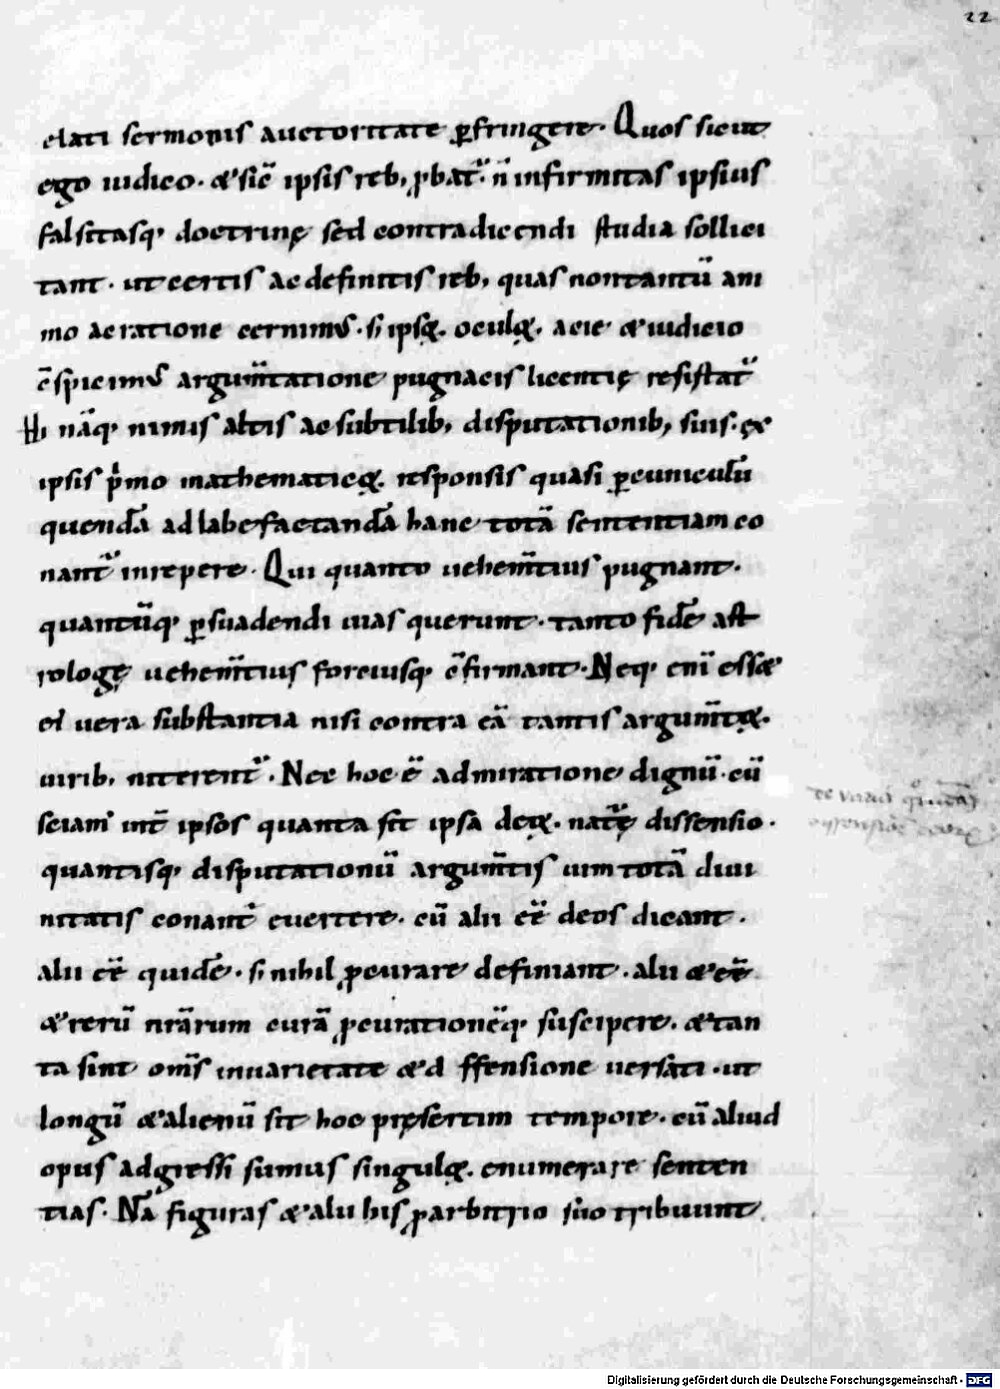 22
elati sermonis auctoritate ꝑfringere. Quos sicut
ego iudico. & sic̄ ipsis reb; ꝓbat᷑. n̄ infirmitas ipsius
falsitasq; doctrinę sed contradicendi studia sollici
tant. ut certis ac definitis reb; quas non tantū ani
mo ac ratione cernimꝰ. si ipsoꝝ. oculoꝝ. acie & iudicio
c̄spicimꝰ argum̄tatione pugnacis licentię resistat᷑
Hi nāq; nimis altis ac subtilib; disputationib; suis. ex
ipsis pͥmo mathematicoꝝ. responsis quasi ꝑ cuniculū
quendā ad labefactandā hanc totā sententiam co
nant᷑ inrepere. Qui quanto uehem̄tius pugnant.
quantūq; ꝑsuadendi uias querunt. tanto fidē ast
rologę uehem̄tius fortiusq; c̄firmant. Neq; enī ess&
ei uera substantia nisi contra eā tantis argum̄toꝝ.
uirib; niterent᷑. Nec hoc ē admiratione dignū. cū
sciam' int̄ ipsos quanta sit ipsa deoꝝ. nat᷑ę dissensio.
quantisq; disputationū argum̄tis uim totā diui
nitatis conant᷑ euertere. cū alii cē̄ deos dicant.
alii cē̄ quidē. si nihil ꝓcurare definiant. alii & cē̄
& rerū nr̄arum curā ꝓcurationēq; suscipere. & tan
ta sint om̄s in uarietate & d ffensione uersati. ut
longū & alienū sit hoc pręsertim tempore. cū aliud
opus adgressi sumus singuloꝝ. enumerare senten
tias. Nā figuras & alii his ꝓ arbitrio suo tribuunt.
Digitalisierung gefördert durch die Deutsche Forschungsgemeinschaft - DFG